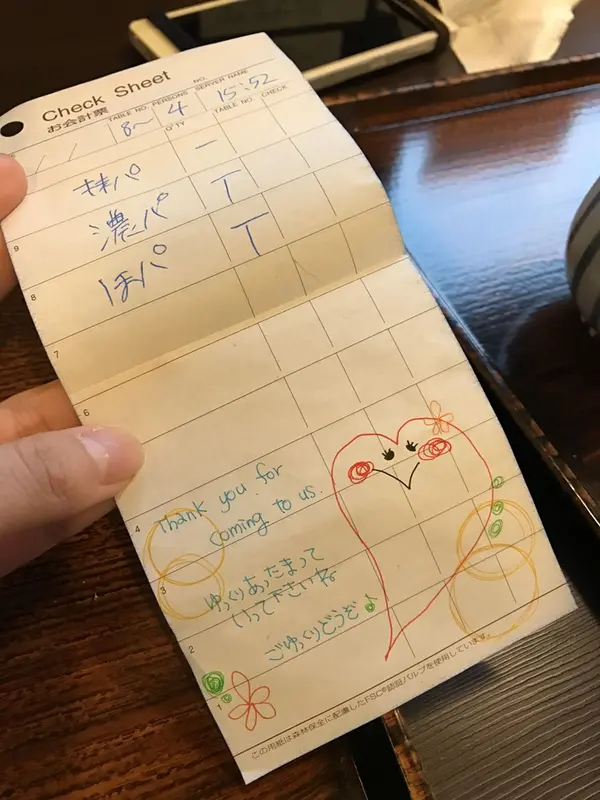 Check Sheet
お会計票
TABLE NO. PERSONS NO. SERVER NAME
8~ 4 15:52
Q'TY TABLE NO. CHECK
パ 一
濃パ T
ほパ T
9
8
7
6
4
3
2
1
Thank you for
coming to us.
ゆっくりあったまって
いって下さいね
ごゆっくりどうぞ♪
この用紙は森林保全に配慮したFSC®認証パルプを使用しています。